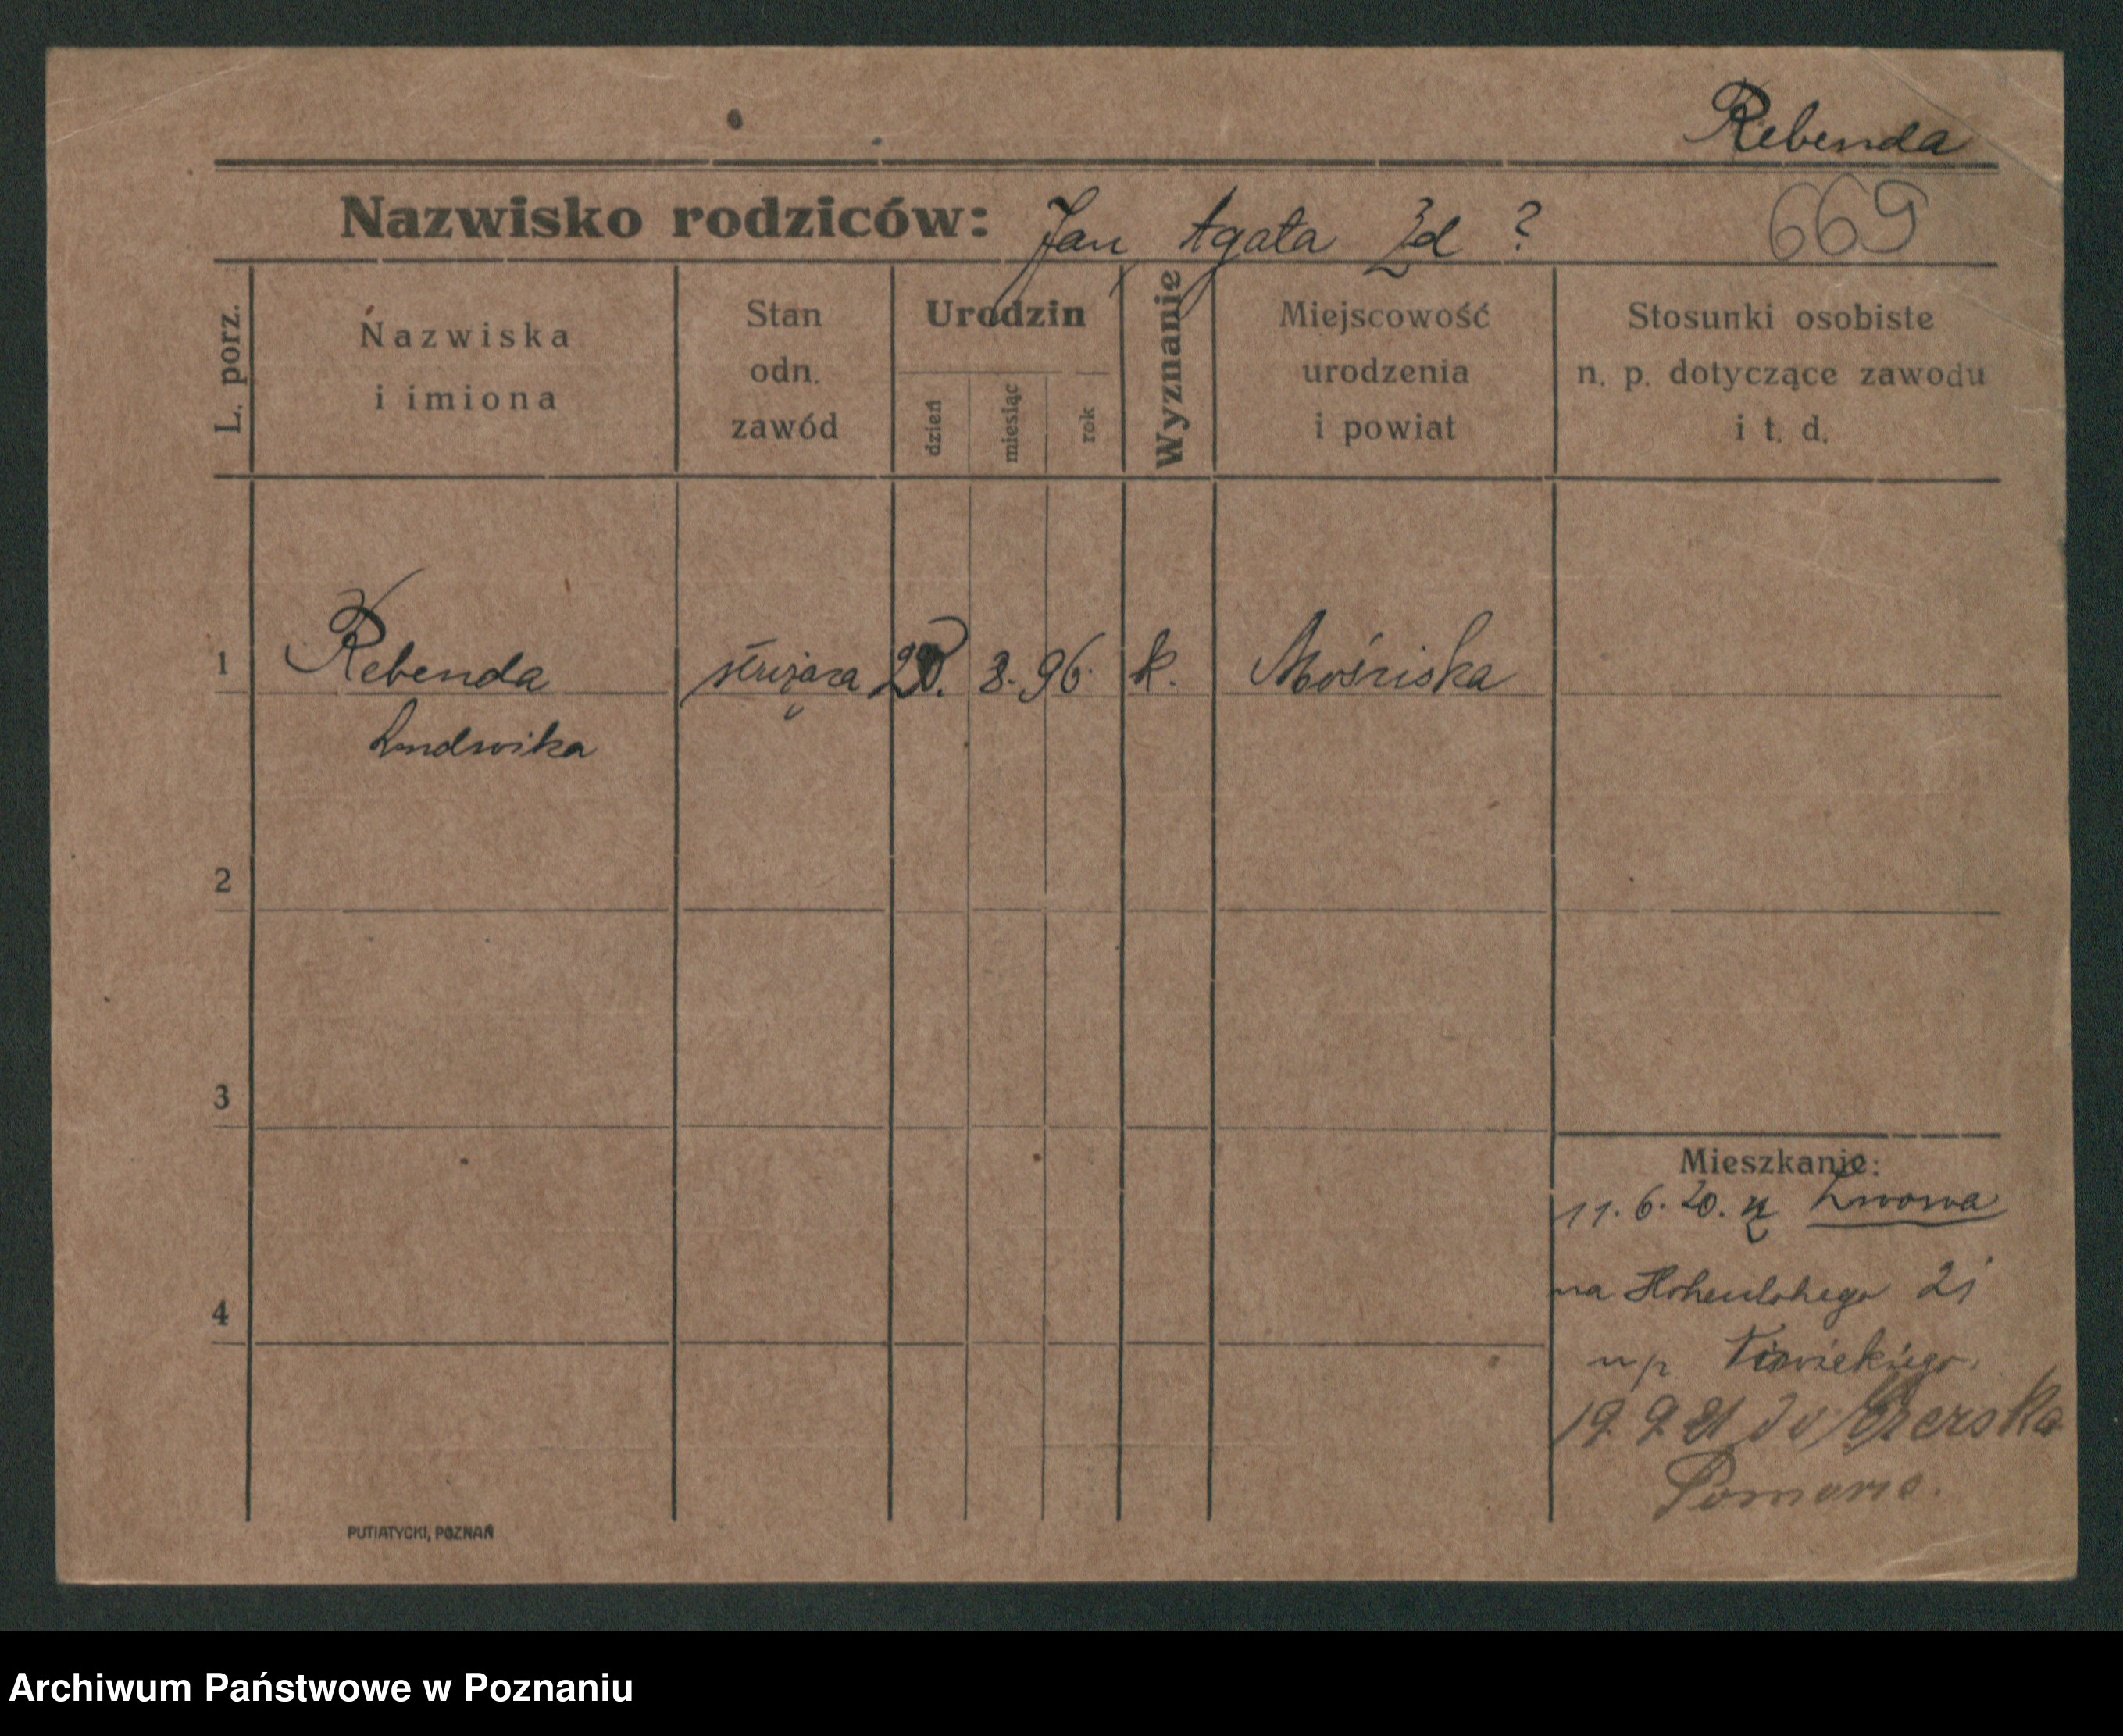 Rebenda
Nazwisko rodziców: Jan, Agata Zd ?
669
L. porz.
Nazwiska
i imiona
Stan
odn.
zawód
Urodzin
dzień
miesiąc
rok
Wyznanie
Miejscowość
urodzenia
i powiat
Stosunki osobiste
n. p. dotyczące zawodu
i t. d.
1 Rebenda służąca 8. 96. k. Mościska
Ludwika
2
3
4
Mieszkanie:
11. 6. 20. z Lwowa
na Hohenlohego
u p
19. 9 21 do Czerska
Pomorze.
PUTIATYCKI, POZNAŃ
Archiwum Państwowe w Poznaniu